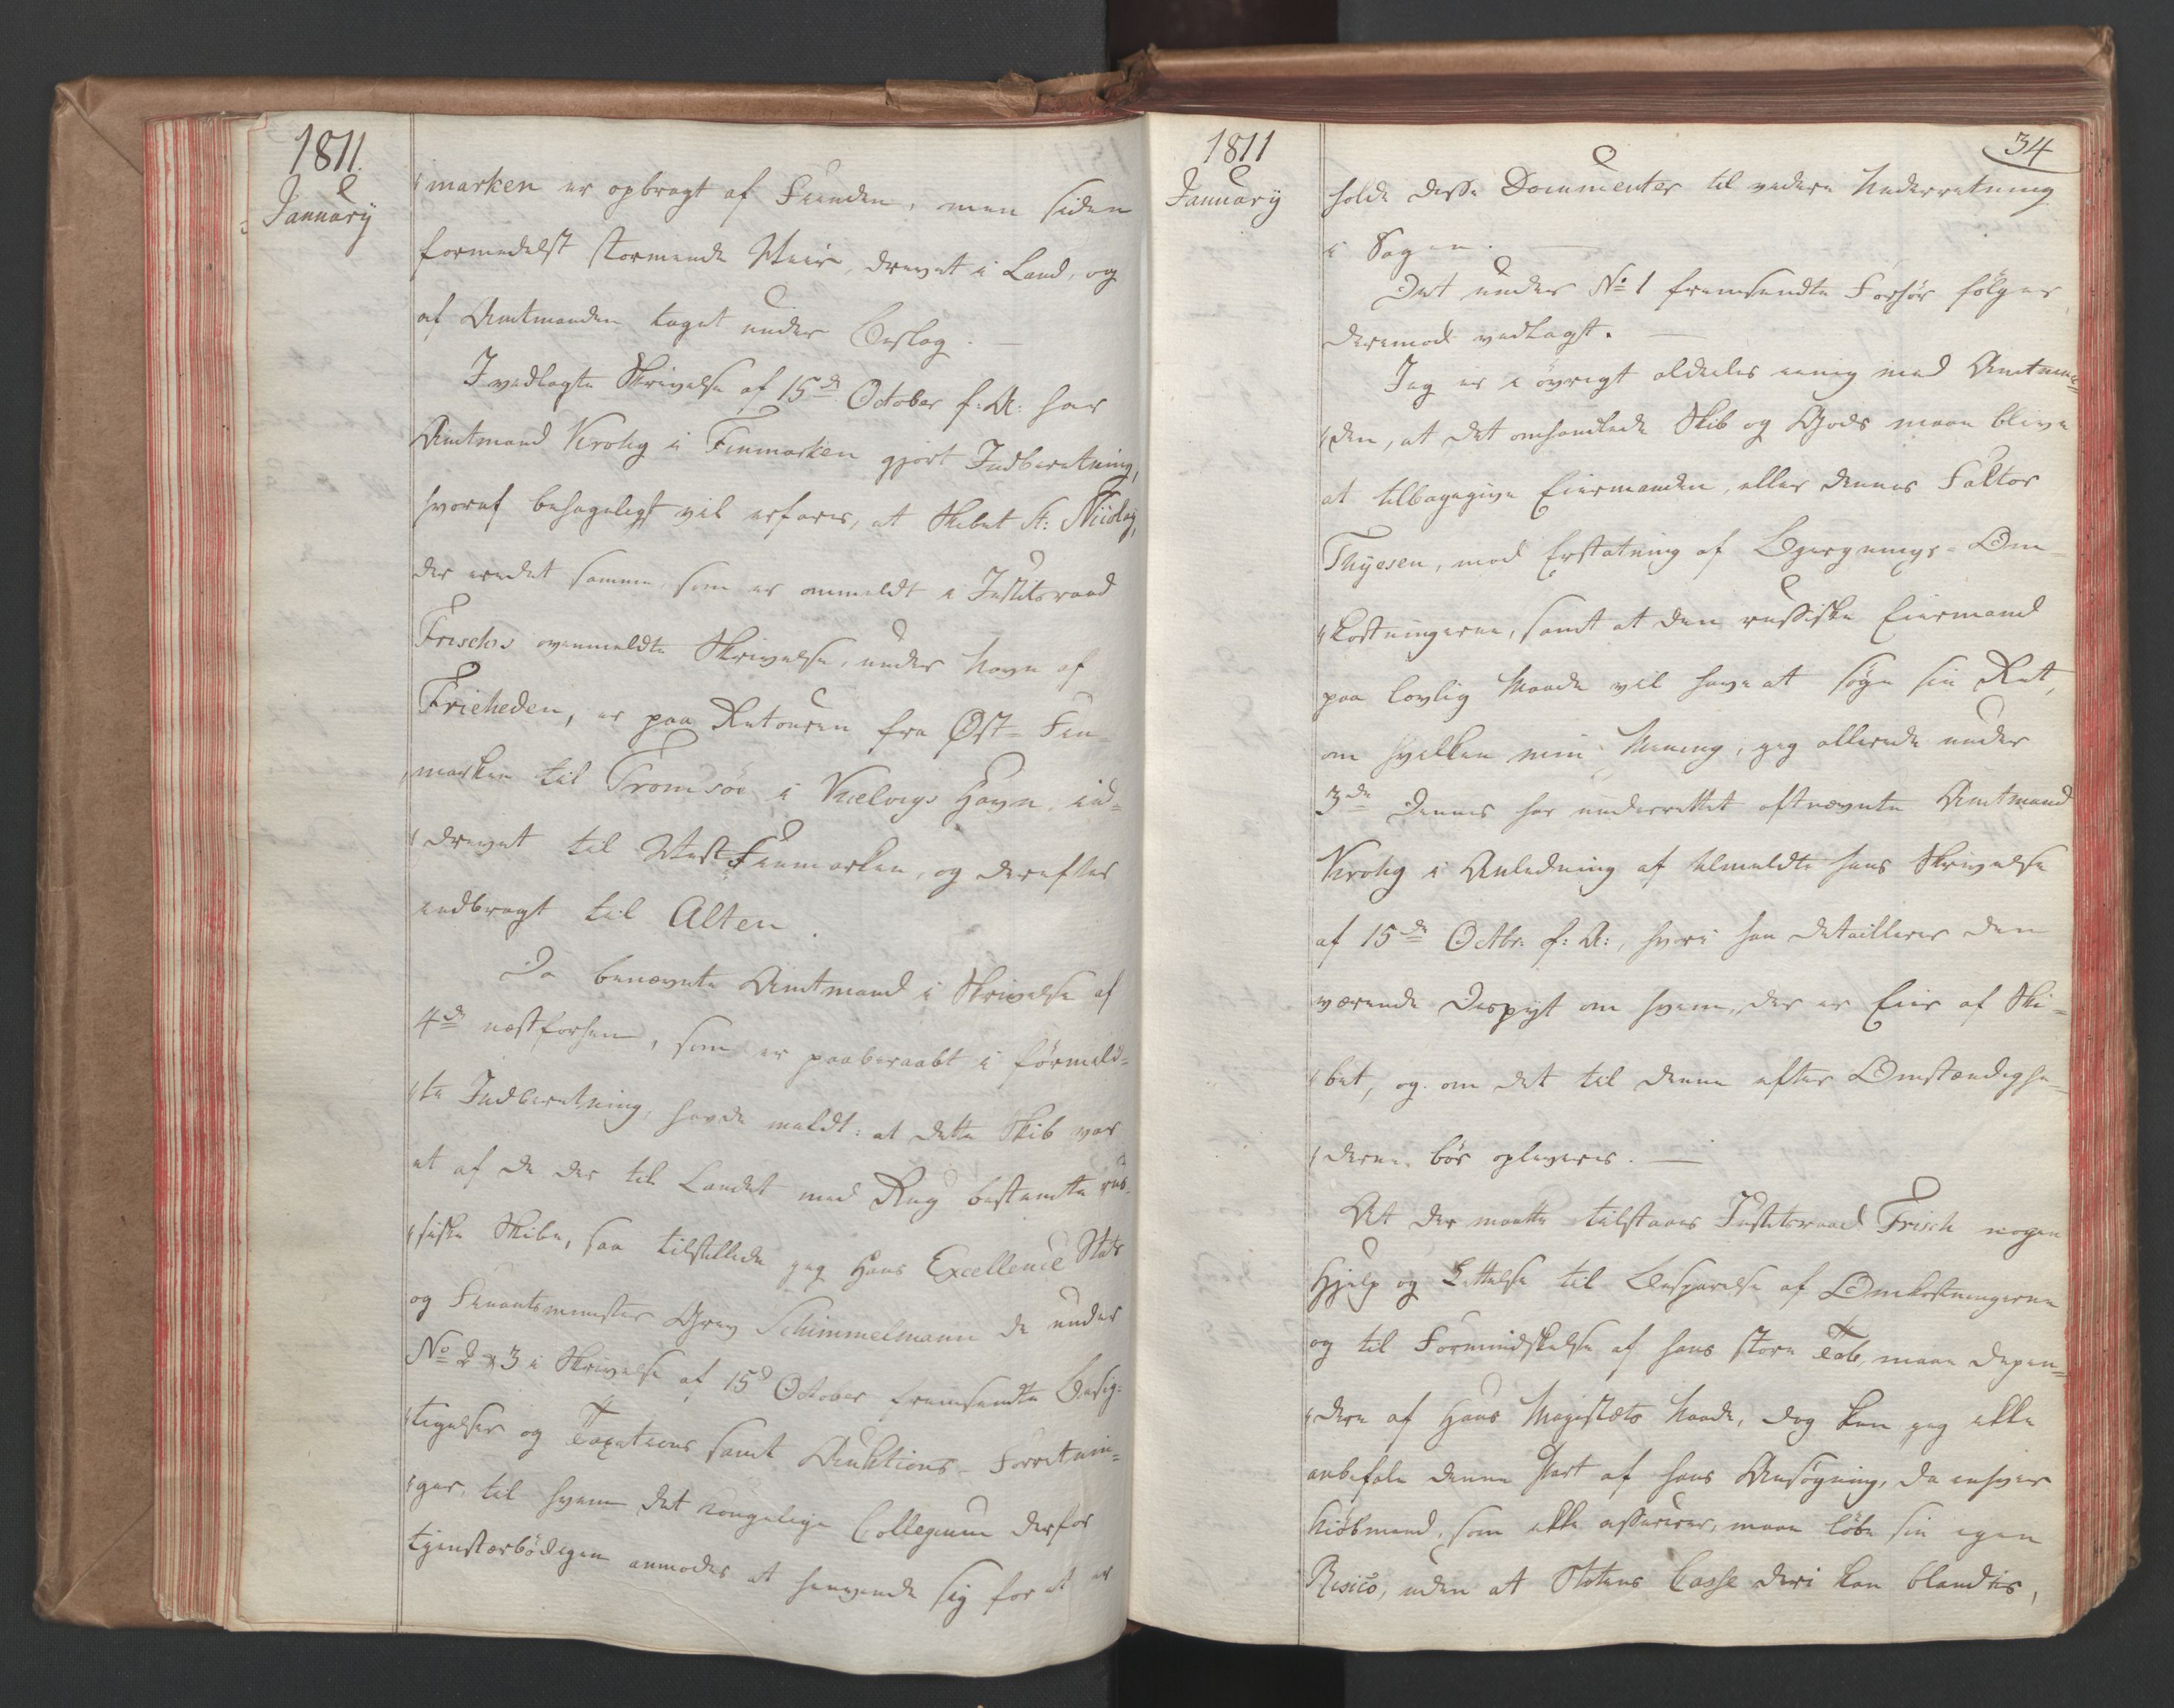 1811.
January
marken er opbragt af Fienden, men siden
formedelst stormende Veir, drevet i Land, og
af Amtmanden taget under Beslag. —
I vedlagte Skrivelse af 15de October f: A: har
Amtmand Krohg i Finmarken gjort Indberetning,
hvoraf behageligst vil erfares, at Skibet St: Nicolay,
der er det samme, som er ommeldt i Justitsraad
Frischs ovenmeldte Skrivelse, under Navn af
Frieheden, er paa Retouren fra Øst-Fin-
marken til Tromsøe i Kielvigs Havn, ind-
drevet til Vest Finmarken, og derefter
indbragt til Alten.
Da benævnte Amtmand i Skrivelse af
4de næstforhen, som er paaberaabt i førmeld-
te Indberetning, havde meldt: at dette Skib var
et af de der til Landet med Rug bestemte rus-
siske Skibe, saa tilstillede jeg Hans Excellence Stats
og Finantsminister Grev Schimmelmann de under
No 2 & 3 i Skrivelse af 15d October fremsendte Besig-
tigelses og Taxations samt Auktions-Forretnin-
ger, til hvem det kongelige Collegium derfor
tjenstærbødigen anmodes at henvende sig for at er
1811
January
34
holde disse Documenter til videre Underretning
i Sagen. —
Det under No 1 fremsendte Forhør følger
derimod vedlagt. —
Jeg er i øvrigt aldeles enig med Amtman-
den, at det omhandlede Skib og Gods maa blive
at tilbagegive Eiermanden, eller dennes Faktor
Thyesen, mod Erstatning af Bjergnings-Om-
kostningerne, samt at den russiske Eiermand
paa lovlig Maade vil have at søge sin Ret,
om hvilken min Mening, jeg allerede under
3de dennes har underrettet oftnævnte Amtmand
Krohg i Anledning af tilmeldte hans Skrivelse
af 15de Octbr: f: A:, hvori han detaillerer den
værende Dispüt om hvem, der er Eier af Ski-
bet, og om det til denne efter Omstændighe-
derne bør opleveres. —
At der maatte tilstaaes Justitsraad Frisch nogen
Hjelp og Lettelse til Besparelse af Omkostningerne
og til Formindskelse af hans store Tab, maae depen-
dere af Hans Majestæts Naade, dog kan jeg ikke
anbefale denne Part af hans Ansøgning, da enhver
Kiøbmand, som ikke assurerer, maae løbe sin egen
Risico, uden at Statens Casse deri kan blandes,